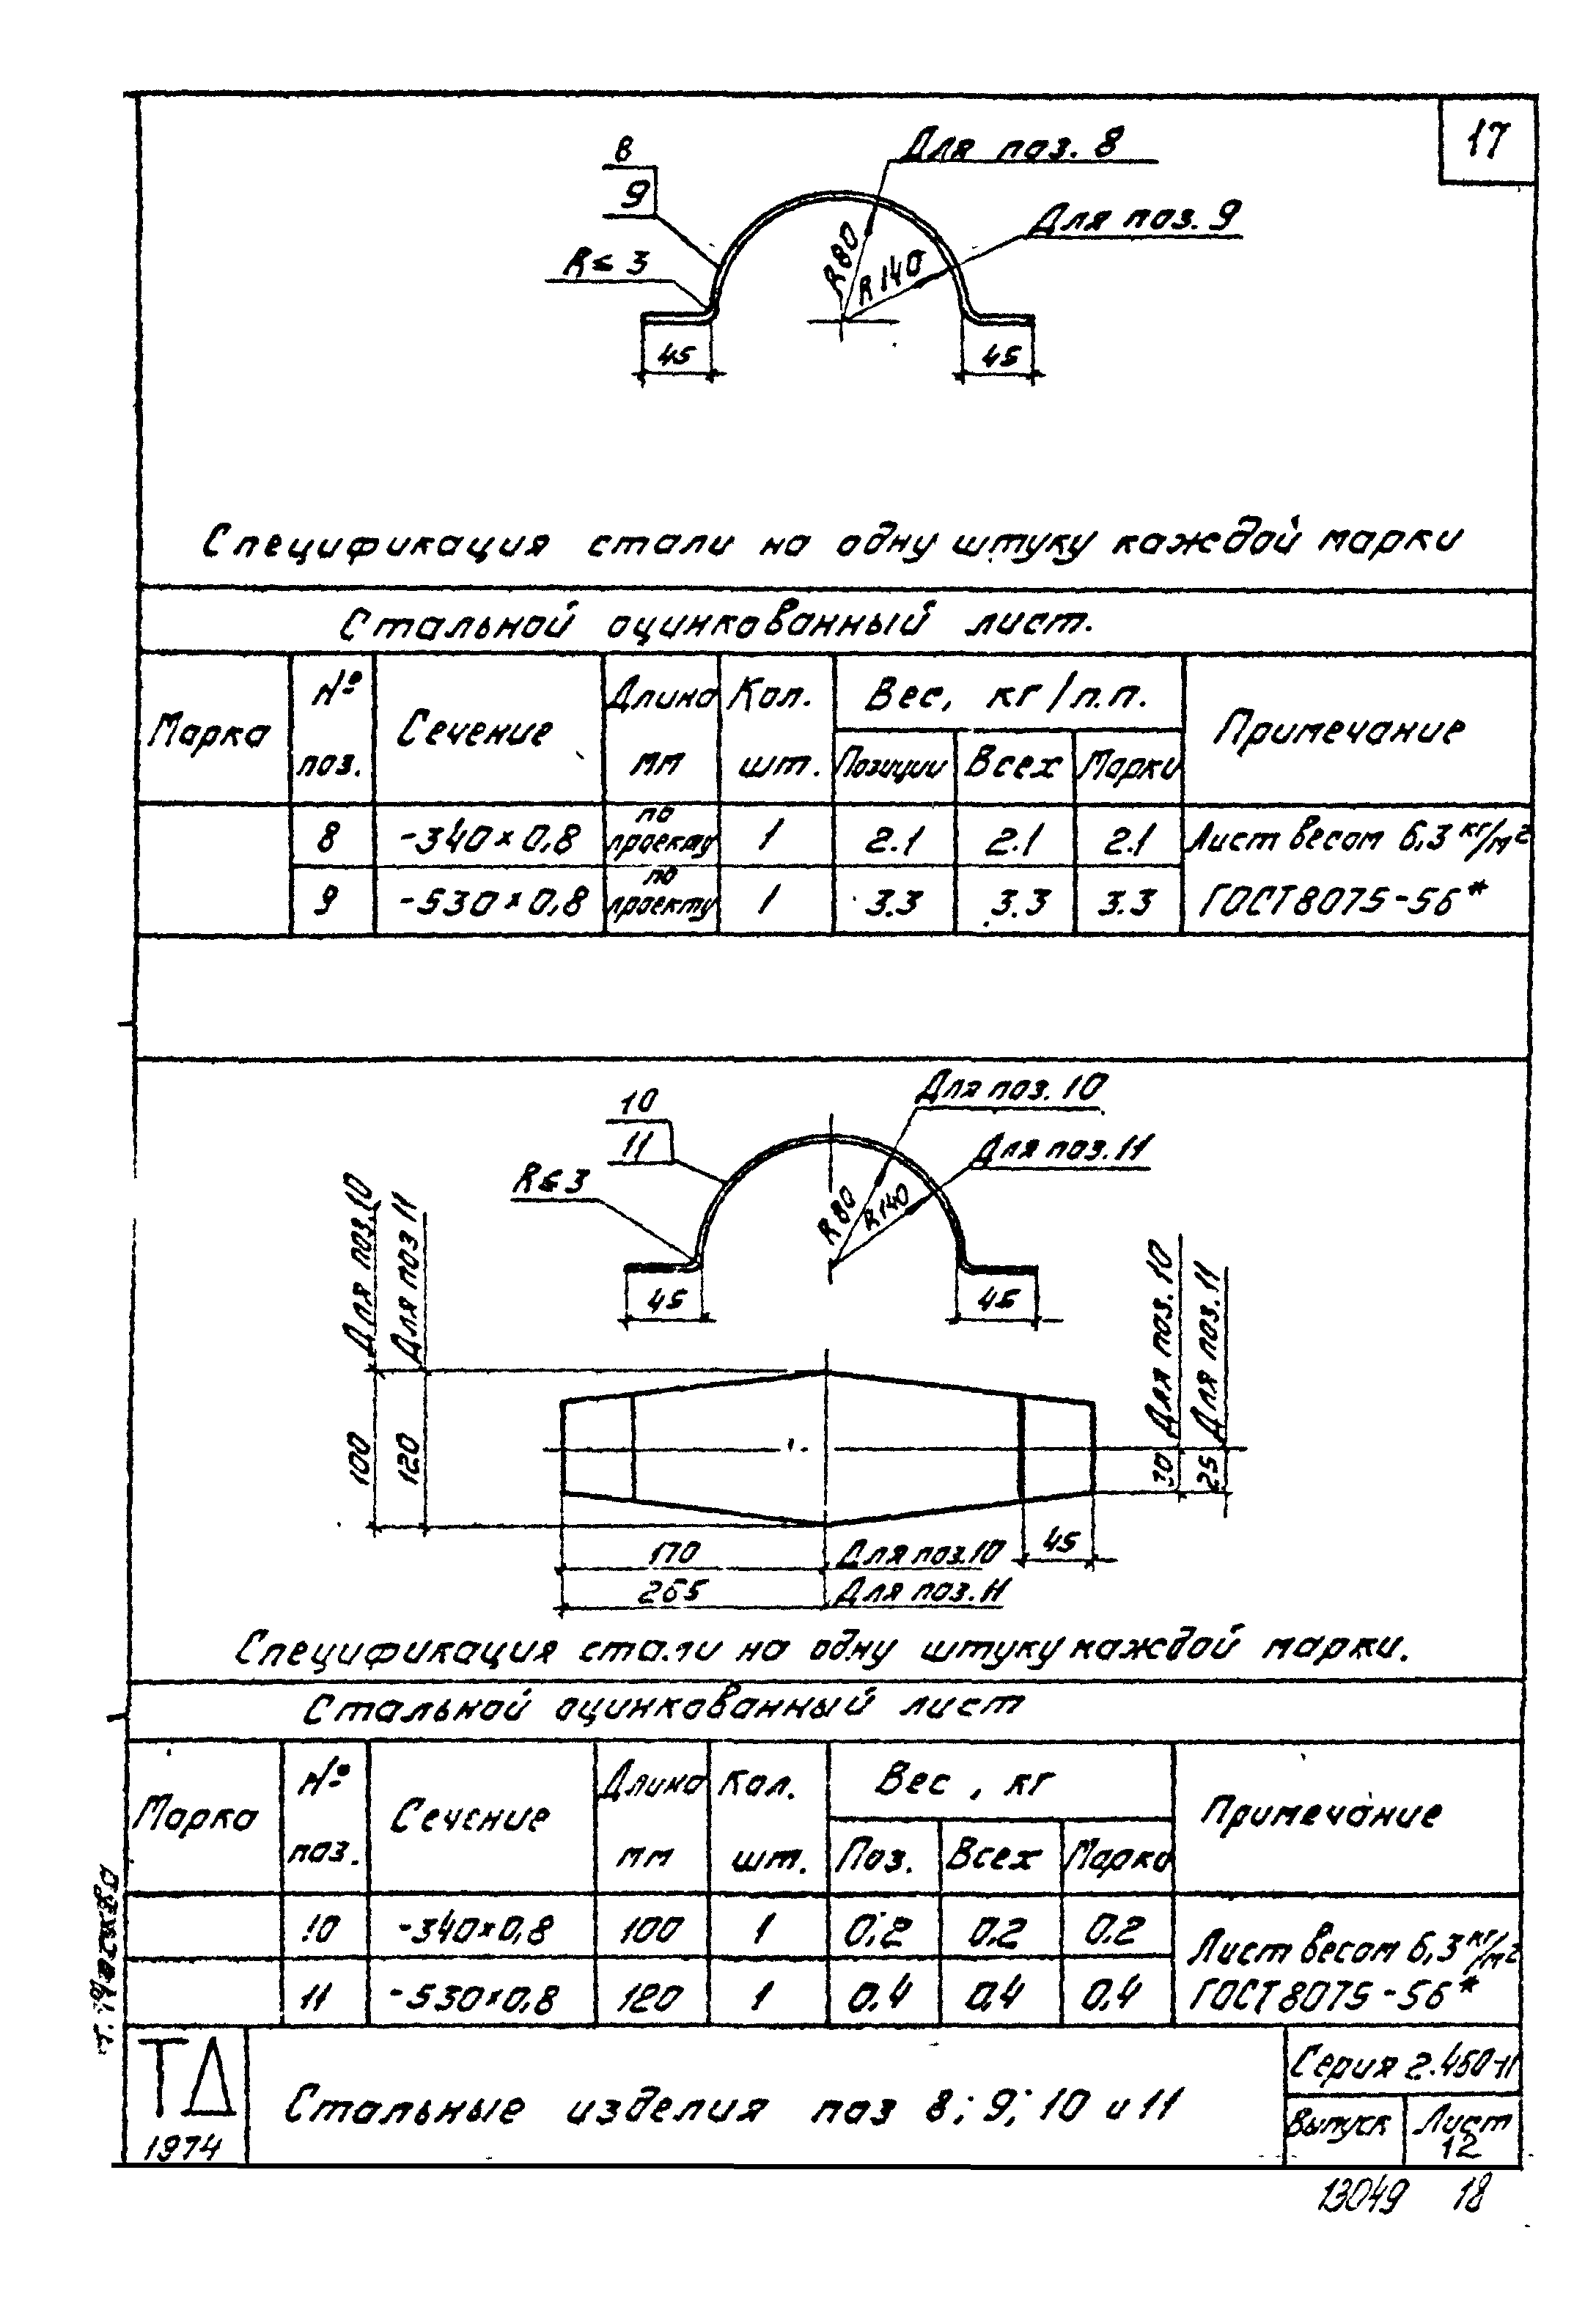 17
8
9
Для поз. 8
Для поз. 9
R ≤ 3
R 80
R 140
45
45
Спецификация стали на одну штуку каждой марки
Стальной оцинкованный лист.
Марка
№ поз.
Сечение
Длина мм
Кол. шт.
Вес, кг/п.п.
Позиции
Всех
Марки
Примечание
8 -340×0,8 по проекту 1 2.1 2.1 2.1 Лист весом 6,3 кг/м2
9 -530×0,8 по проекту 1 3.3 3.3 3.3 ГОСТ 8075-56*
10
11
Для поз. 10
Для поз. 11
R ≤ 3
R 80
R 140
45
45
Для поз. 10
Для поз 11
100
120
Для поз. 10
Для поз. 11
30
25
170 Для поз.10
45
265 Для поз. 11
Спецификация стали на одну штуку каждой марки.
Стальной оцинкованный лист
Марка
№ поз.
Сечение
Длина мм
Кол. шт.
Вес, кг
Поз.
Всех
Марка
Примечание
10 -340×0,8 100 1 0,2 0,2 0,2 Лист весом 6,3 кг/м2
11 -530×0,8 120 1 0,4 0,4 0,4 ГОСТ 8075-56*
ТД
1974
Стальные изделия поз 8; 9; 10 и 11
Серия 2.460-11
Выпуск
Лист
12
13049 18